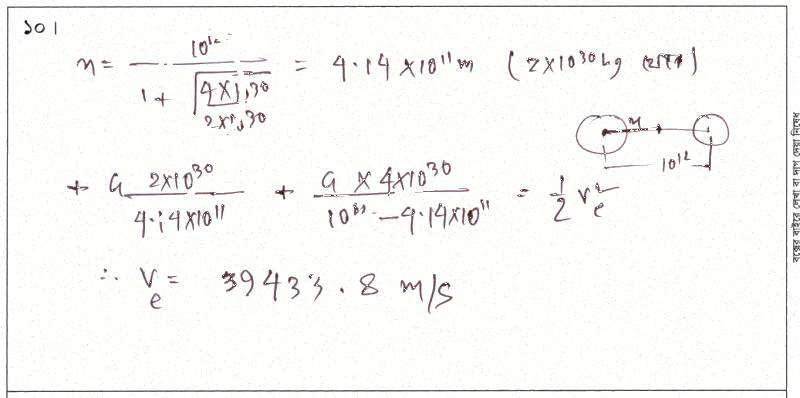 ১০।
x = 10¹² / (1 + √(4×10³⁰ / 2×10³⁰)) = 4.14 × 10¹¹ m (2×10³⁰ kg থেকে)
x
10¹²
+ G 2×10³⁰ / 4.14×10¹¹ + G × 4×10³⁰ / (10¹² − 4.14×10¹¹) = 1/2 vₑ²
∴ Vₑ = 39433.8 m/s
বক্সের বাইরে লেখা বা দাগ দেয়া নিষেধ